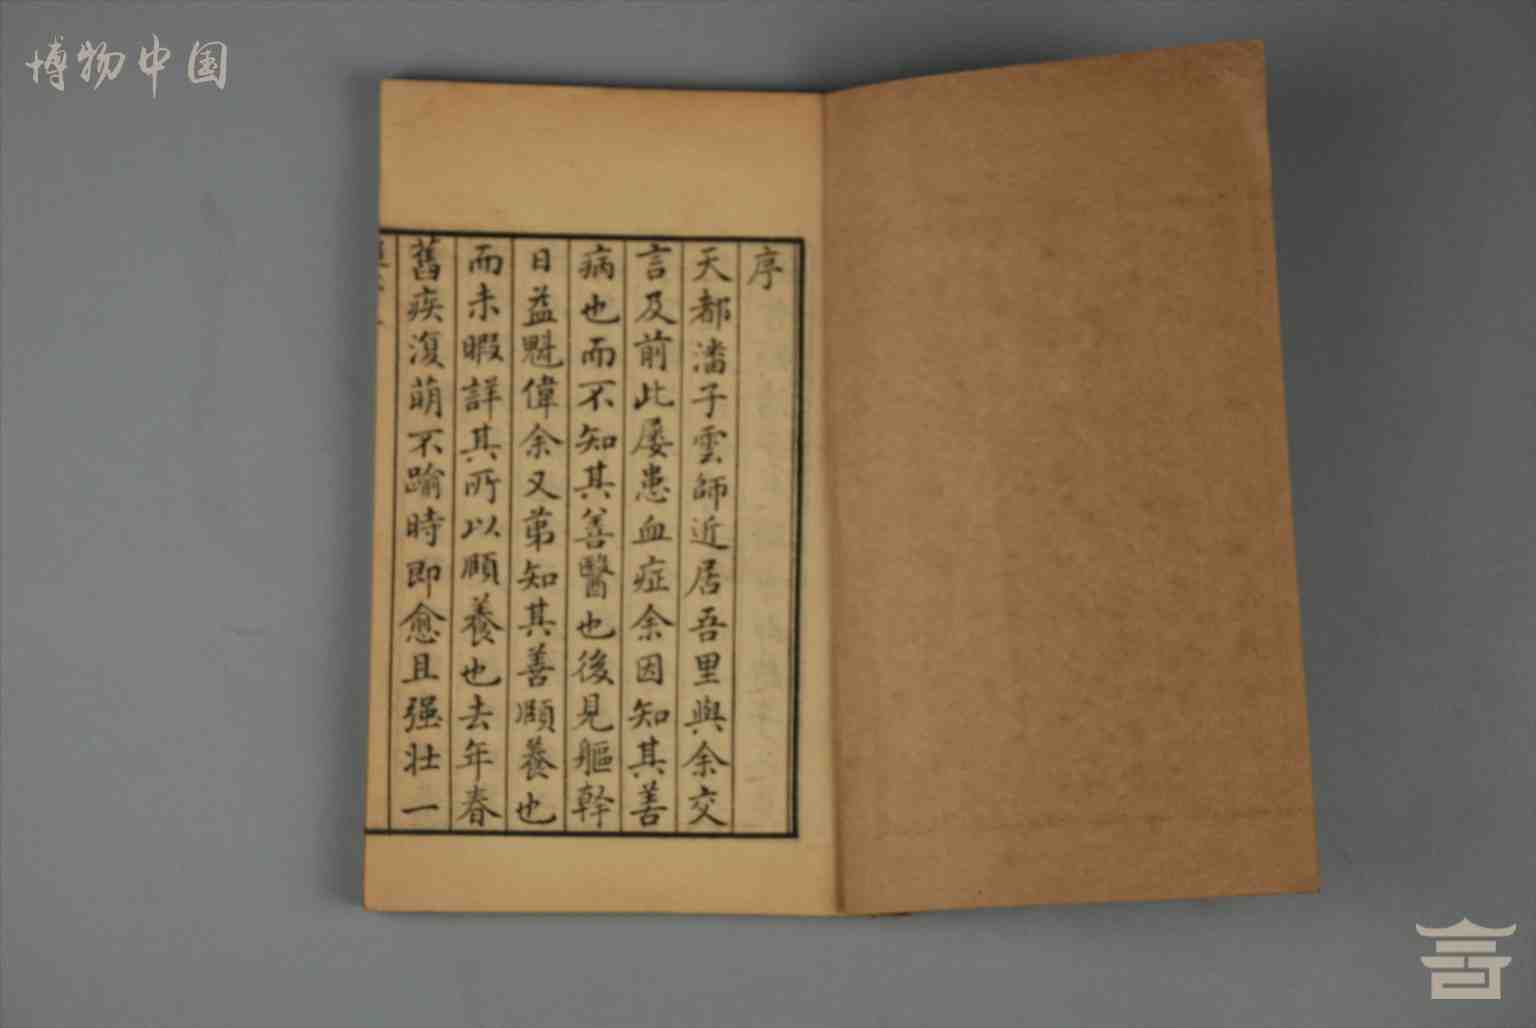 博物中国
序
天都潘子雲師近居吾里與余交
言及前此屡患血症余因知其善
病也而不知其善醫也後見軀幹
日益魁偉余又苐知其善頤養也
而未暇詳其所以頤養也去年春
舊疾復萌不踰時即愈且强壯一